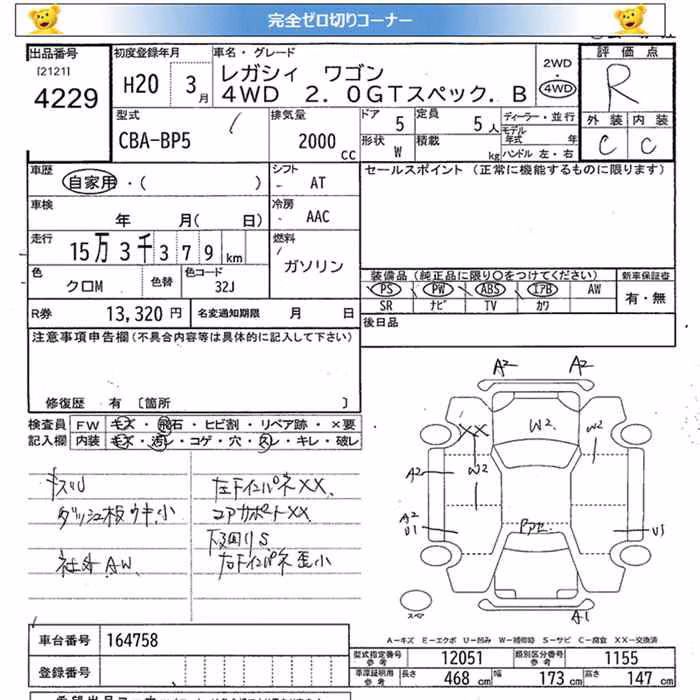 完全ゼロ切りコーナー
出品番号 初度登録年月 車名・グレード 2WD 評価点
[2121] 4229 H20 3月 レガシィ ワゴン 4WD R
4WD 2.0GTスペック.B
型式 排気量 ドア 5 定員 5人 ディーラー・並行 外装 内装
CBA-BP5 2000cc 形状 W 積載 kg モデル年式 年 C C
ハンドル 左・右
車歴 自家用・( ) シフト - AT セールスポイント (正常に機能するものに限ります)
車検 年 月(日) 冷房 - AAC
走行 15万3千379km 燃料 ガソリン
色 クロM 色替 色コード 32J
装備品(純正品に限り○をつけてください) 新車保証書
PS PW ABS エアB AW 有・無
SR ナビ TV カワ
R券 13,320円 名変通知期限 月 日 後日品
注意事項申告欄(不具合内容等は具体的に記入して下さい)
修復歴 有 [箇所 ]
検査員 FW キズ・飛石・ヒビ割・リペア跡・×要
記入欄 内装 キズ・汚レ・コゲ・穴・スレ・キレ・破レ
キスリ 左下インパネXX
ダッシュ板ウキ小 コアサポートXX
下廻りS
社外AW 右下インパネ歪小
A2 A2
XX W2 W2
A2 W2
A2
U1 U1
スペア A1
A-キズ E-エクボ U-凹み W-補修跡 S-サビ C-腐食 XX-交換済
車台番号 164758
型式指定番号 参考 12051 類別区分番号 参考 1155
登録番号 車庫証明用 参考 長さ 468cm 幅 173cm 高さ 147cm